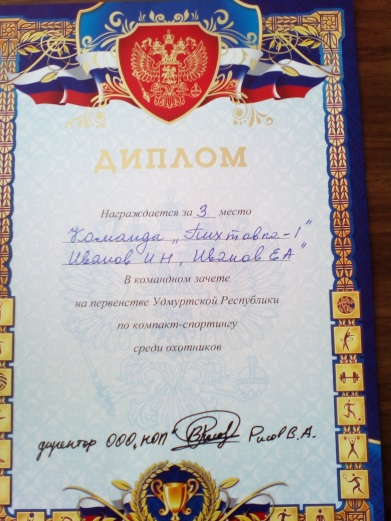 ДИПЛОМ
Награждается за 3 место
Команда „Пихтовка-1"
Иванов И Н, Иванов Е А
В командном зачете
на первенстве Удмуртской Республики
по компакт-спортингу
среди охотников
директор ООО „КОП" Рисов В.А.